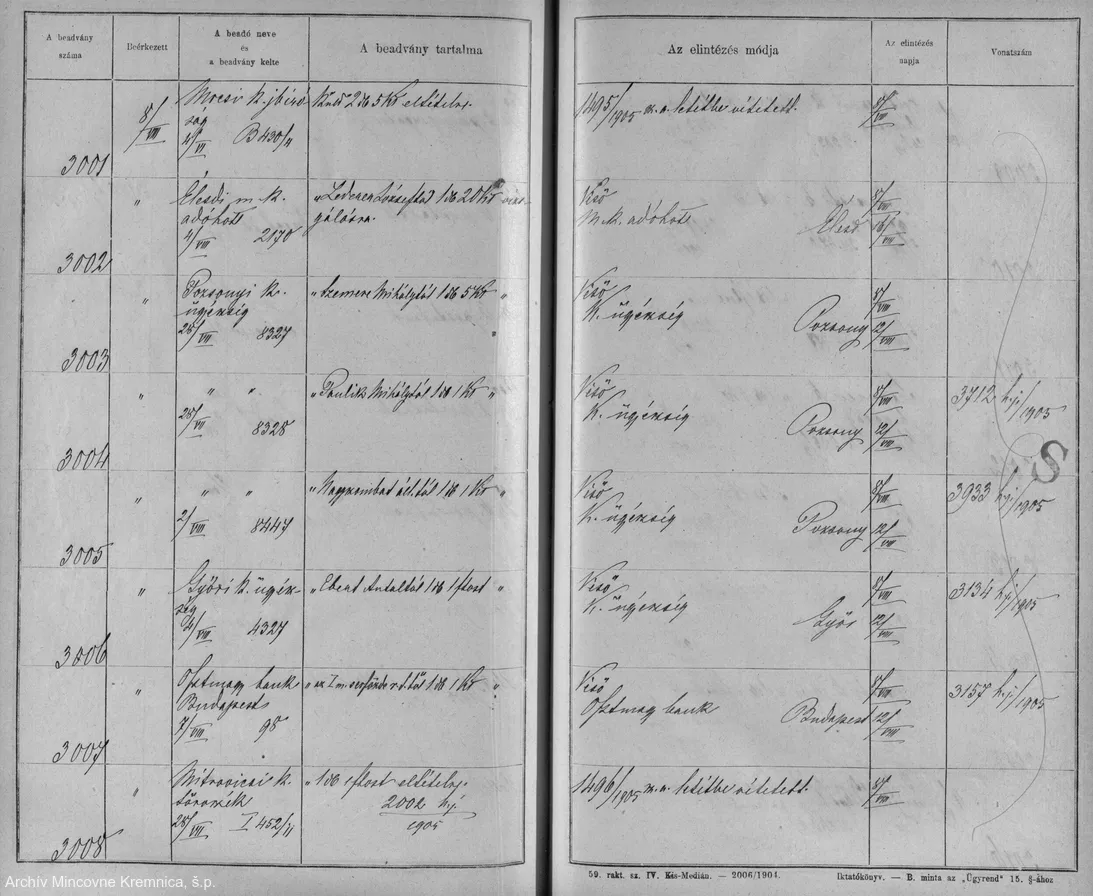 A beadvány
száma
Beérkezett
A beadó neve
és
a beadvány kelte
A beadvány tartalma
Az elintézés módja
Az elintézés
napja
Vonatszám
3001
8/VIII
Mocsi k. jbíró
ság
4/VI B 430/4
2 db 5 Kr elhelyez.
1495/1905 m. a. letétbe vétetett.
8/VIII
3002
"
Élesdi m. k.
adóhiv.
4/VIII 2170
" Lederer Józseftől 1 db 20 Kr
Viső
M. k. adóhiv. Élesd
8/VIII
16/VIII
3003
"
Pozsonyi k.
ügészség
28/VII 8327
" Szemere Mihálytól 1 db 5 Kr "
Viső
K. ügyészség Pozsony
8/VIII
12/VIII
3004
"
" "
28/VII 8328
" Paulik Mihálytól 1 db 1 Kr "
Viső
K. ügyészség Pozsony
8/VIII
12/VIII
3712 h.j./1905
3005
"
" "
2/VIII 8447
" Nagyszombat 1 db 1 Kr "
Viső
K. ügyészség Pozsony
8/VIII
12/VIII
3933 h.j./1905
3006
"
Győri k. ügyész-
ség
4/VIII 4327
" Ebert Antaltól 1 db 1 frtost "
Viső
K. ügyészség Győr
8/VIII
12/VIII
3134 h.j./1905
3007
"
Osztmagy bank
Budapest
7/VIII 98
1 db 1 Kr "
Viső
Osztmagy bank Budapest
8/VIII
12/VIII
3157 h.j./1905
3008
"
Mitrovicai k.
törvszék
28/VII I 452/4
" 1 db 1 frtost
2002 h.j.
1905
1496/1905 m. a. letétbe vétetett.
8/VIII
59. rakt. sz. IV. Kis-Medián. — 2006/1904.
Iktatókönyv. — B. minta az „Ügyrend" 15. §-ához
Archív Mincovne Kremnica, š.p.